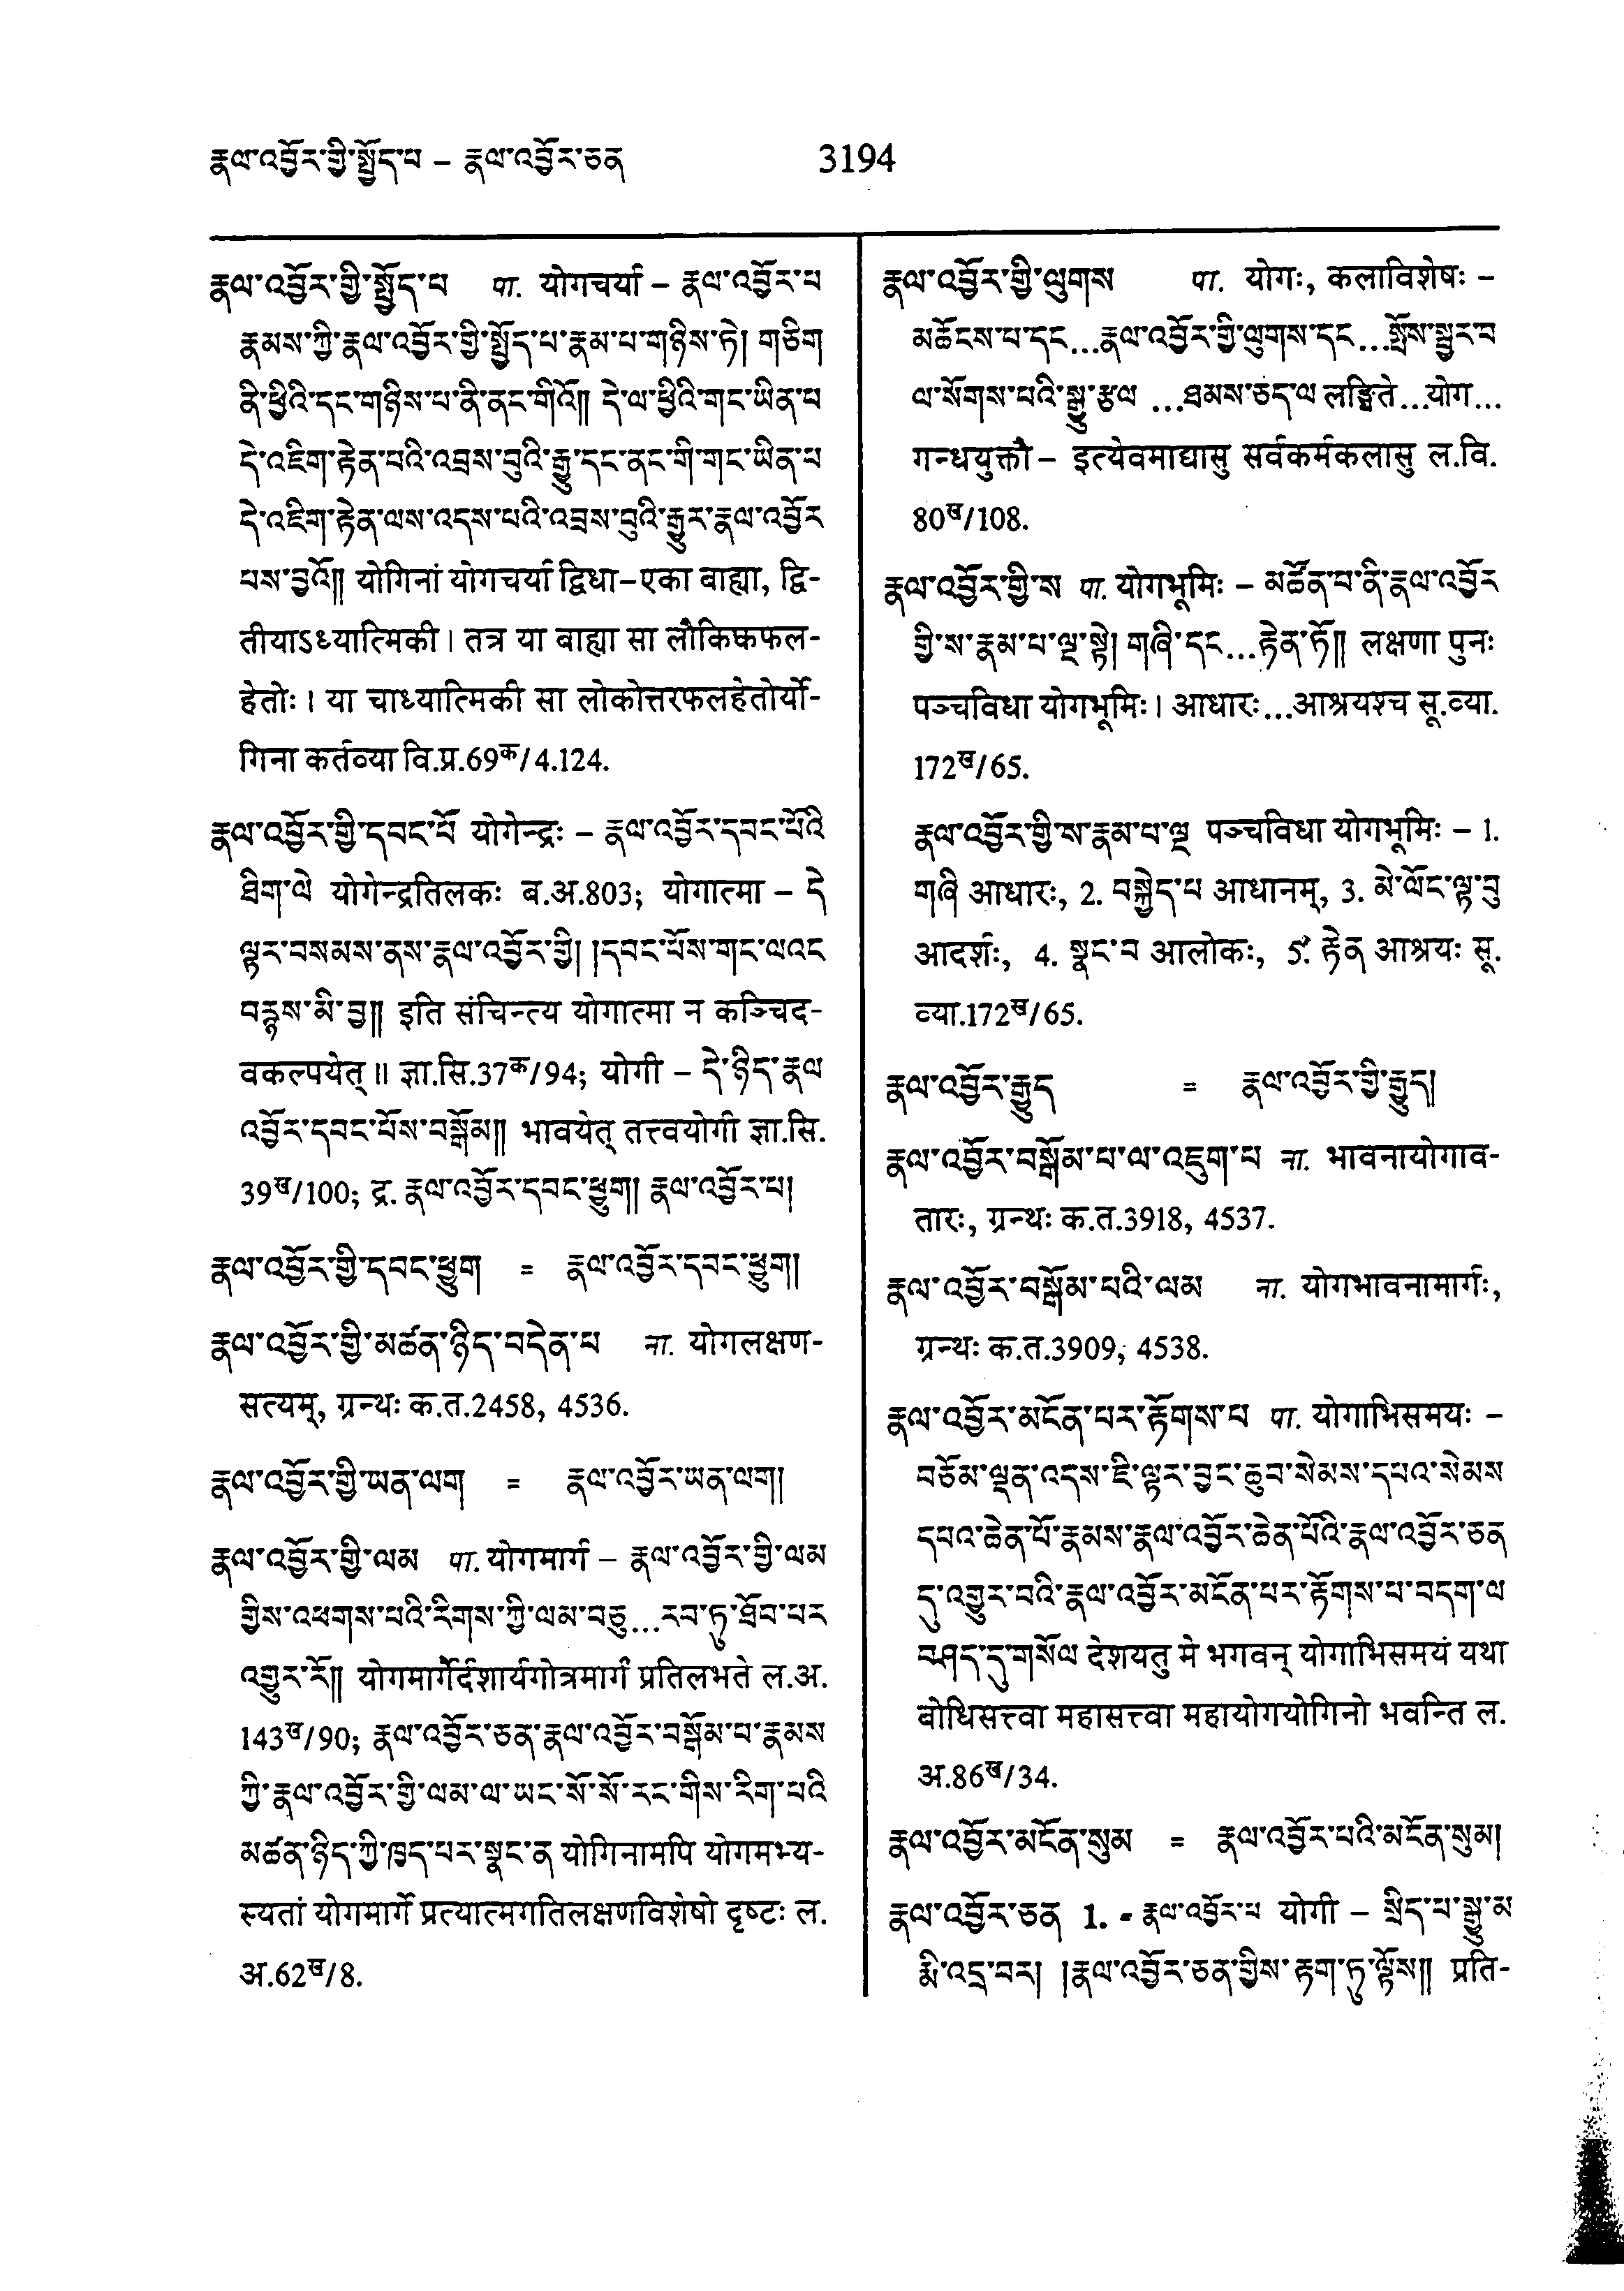 རྣལ་འབྱོར་གྱི་སྤྱོད་པ – རྣལ་འབྱོར་ཅན 3194
རྣལ་འབྱོར་གྱི་སྤྱོད་པ पा. योगचर्या – རྣལ་འབྱོར་པ
རྣམས་ཀྱི་རྣལ་འབྱོར་གྱི་སྤྱོད་པ་རྣམ་པ་གཉིས་ཏེ། གཅིག
ནི་ཕྱིའི་དང་གཉིས་པ་ནི་ནང་གིའོ།། དེ་ལ་ཕྱིའི་གང་ཡིན་པ
དེ་འཇིག་རྟེན་པའི་འབྲས་བུའི་རྒྱུ་དང་ནང་གི་གང་ཡིན་པ
དེ་འཇིག་རྟེན་ལས་འདས་པའི་འབྲས་བུའི་རྒྱུར་རྣལ་འབྱོར
པས་བྱའོ།། योगिनां योगचर्या द्विधा–एका बाह्या, द्वि-
तीयाऽध्यात्मिकी। तत्र या बाह्या सा लौकिकफल-
हेतोः। या चाध्यात्मिकी सा लोकोत्तरफलहेतोर्यो-
गिना कर्तव्या वि.प्र.69क/4.124.
རྣལ་འབྱོར་གྱི་དབང་པོ योगेन्द्रः – རྣལ་འབྱོར་དབང་པོའི
ཐིག་ལེ योगेन्द्रतिलकः ब.अ.803; योगात्मा – དེ
ལྟར་བསམས་ནས་རྣལ་འབྱོར་གྱི། །དབང་པོས་གང་ལའང
བརྙས་མི་བྱ།། इति संचिन्त्य योगात्मा न कञ्चिद-
वकल्पयेत्॥ ज्ञा.सि.37क/94; योगी – དེ་ཉིད་རྣལ
འབྱོར་དབང་པོས་བསྒོམ།། भावयेत् तत्त्वयोगी ज्ञा.सि.
39ख/100; द्र. རྣལ་འབྱོར་དབང་ཕྱུག། རྣལ་འབྱོར་པ།
རྣལ་འབྱོར་གྱི་དབང་ཕྱུག = རྣལ་འབྱོར་དབང་ཕྱུག།
རྣལ་འབྱོར་གྱི་མཚན་ཉིད་བདེན་པ ना. योगलक्षण-
सत्यम्, ग्रन्थः क.त.2458, 4536.
རྣལ་འབྱོར་གྱི་ཡན་ལག = རྣལ་འབྱོར་ཡན་ལག།
རྣལ་འབྱོར་གྱི་ལམ पा. योगमार्ग – རྣལ་འབྱོར་གྱི་ལམ
གྱིས་འཕགས་པའི་རིགས་ཀྱི་ལམ་བཅུ...རབ་ཏུ་ཐོབ་པར
འགྱུར་རོ།། योगमार्गैर्दशार्यगोत्रमार्गं प्रतिलभते ल.अ.
143ख/90; རྣལ་འབྱོར་ཅན་རྣལ་འབྱོར་བསྒོམ་པ་རྣམས
ཀྱི་རྣལ་འབྱོར་གྱི་ལམ་ལ་ཡང་སོ་སོ་རང་གིས་རིག་པའི
མཚན་ཉིད་ཀྱི་ཁྱད་པར་སྣང་ན योगिनामपि योगमभ्य-
स्यतां योगमार्गे प्रत्यात्मगतिलक्षणविशेषो दृष्टः ल.
अ.62ख/8.
རྣལ་འབྱོར་གྱི་ལུགས पा. योगः, कलाविशेषः –
མཆོངས་པ་དང...རྣལ་འབྱོར་གྱི་ལུགས་དང...སྤོས་སྦྱར་བ
ལ་སོགས་པའི་སྒྱུ་རྩལ ...ཐམས་ཅད་ལ लङ्घिते...योग...
गन्धयुक्तौ – इत्येवमाद्यासु सर्वकर्मकलासु ल.वि.
80ख/108.
རྣལ་འབྱོར་གྱི་ས पा. योगभूमिः – མཚོན་པ་ནི་རྣལ་འབྱོར
གྱི་ས་རྣམ་པ་ལྔ་སྟེ། གཞི་དང...རྟེན་ཏོ།། लक्षणा पुनः
पञ्चविधा योगभूमिः। आधारः...आश्रयश्च सू.व्या.
172ख/65.
རྣལ་འབྱོར་གྱི་ས་རྣམ་པ་ལྔ पञ्चविधा योगभूमिः – 1.
གཞི आधारः, 2. བསྐྱེད་པ आधानम्, 3. མེ་ལོང་ལྟ་བུ
आदर्शः, 4. སྣང་བ आलोकः, 5. རྟེན आश्रयः सू.
व्या.172ख/65.
རྣལ་འབྱོར་རྒྱུད = རྣལ་འབྱོར་གྱི་རྒྱུད།
རྣལ་འབྱོར་བསྒོམ་པ་ལ་འཇུག་པ ना. भावनायोगाव-
तारः, ग्रन्थः क.त.3918, 4537.
རྣལ་འབྱོར་བསྒོམ་པའི་ལམ ना. योगभावनामार्गः,
ग्रन्थः क.त.3909, 4538.
རྣལ་འབྱོར་མངོན་པར་རྟོགས་པ पा. योगाभिसमयः –
བཅོམ་ལྡན་འདས་ཇི་ལྟར་བྱང་ཆུབ་སེམས་དཔའ་སེམས
དཔའ་ཆེན་པོ་རྣམས་རྣལ་འབྱོར་ཆེན་པོའི་རྣལ་འབྱོར་ཅན
དུ་འགྱུར་བའི་རྣལ་འབྱོར་མངོན་པར་རྟོགས་པ་བདག་ལ
བཤད་དུ་གསོལ देशयतु मे भगवन् योगाभिसमयं यथा
बोधिसत्त्वा महासत्त्वा महायोगयोगिनो भवन्ति ल.
अ.86ख/34.
རྣལ་འབྱོར་མངོན་སུམ = རྣལ་འབྱོར་པའི་མངོན་སུམ།
རྣལ་འབྱོར་ཅན 1. - རྣལ་འབྱོར་པ योगी – སྲིད་པ་སྒྱུ་མ
རྨི་འདྲ་བར། །རྣལ་འབྱོར་ཅན་གྱིས་རྟག་ཏུ་ལྟོས།། प्रति-